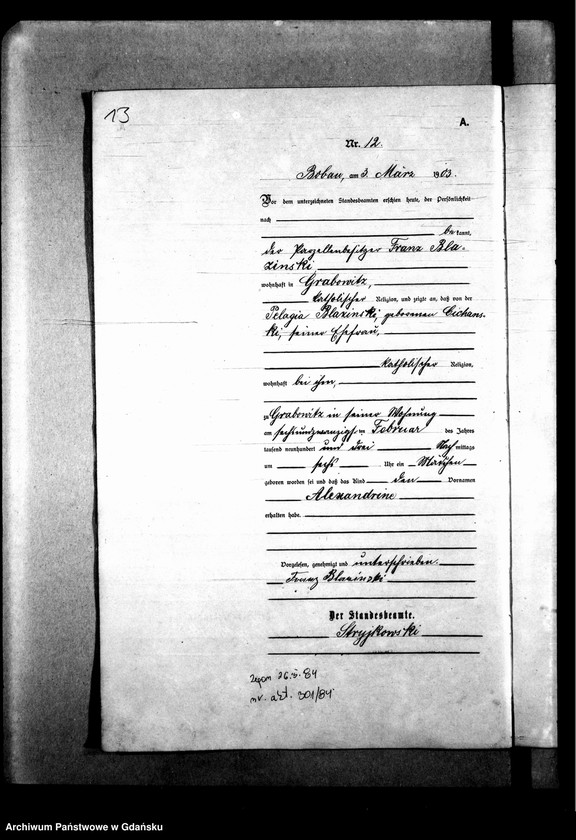 13
A.
Nr. 12.
Bobau, am 3. März 1903.
Vor dem unterzeichneten Standesbeamten erschien heute, der Persönlichkeit
nach
bekannt,
der Parzellenbesitzer Franz Bla-
zinski
wohnhaft in Grabowitz,
katholischer Religion, und zeigte an, daß von der
Pelagia Blazinski, geborenen Cichans-
ki, seiner Ehefrau,
katholischer Religion,
wohnhaft bei ihm,
zu Grabowitz in seiner Wohnung
am sechsundzwanzigsten Februar des Jahres
tausend neunhundert und drei Nachmittags
um sechs Uhr ein Mädchen
geboren worden sei und daß das Kind den Vornamen
Alexandrine
erhalten habe.
Vorgelesen, genehmigt und unterschrieben.
Franz Blazinski
Der Standesbeamte.
Stryjkowski
zgon 26.5.84
nr. akt. 301/84
Archiwum Państwowe w Gdańsku